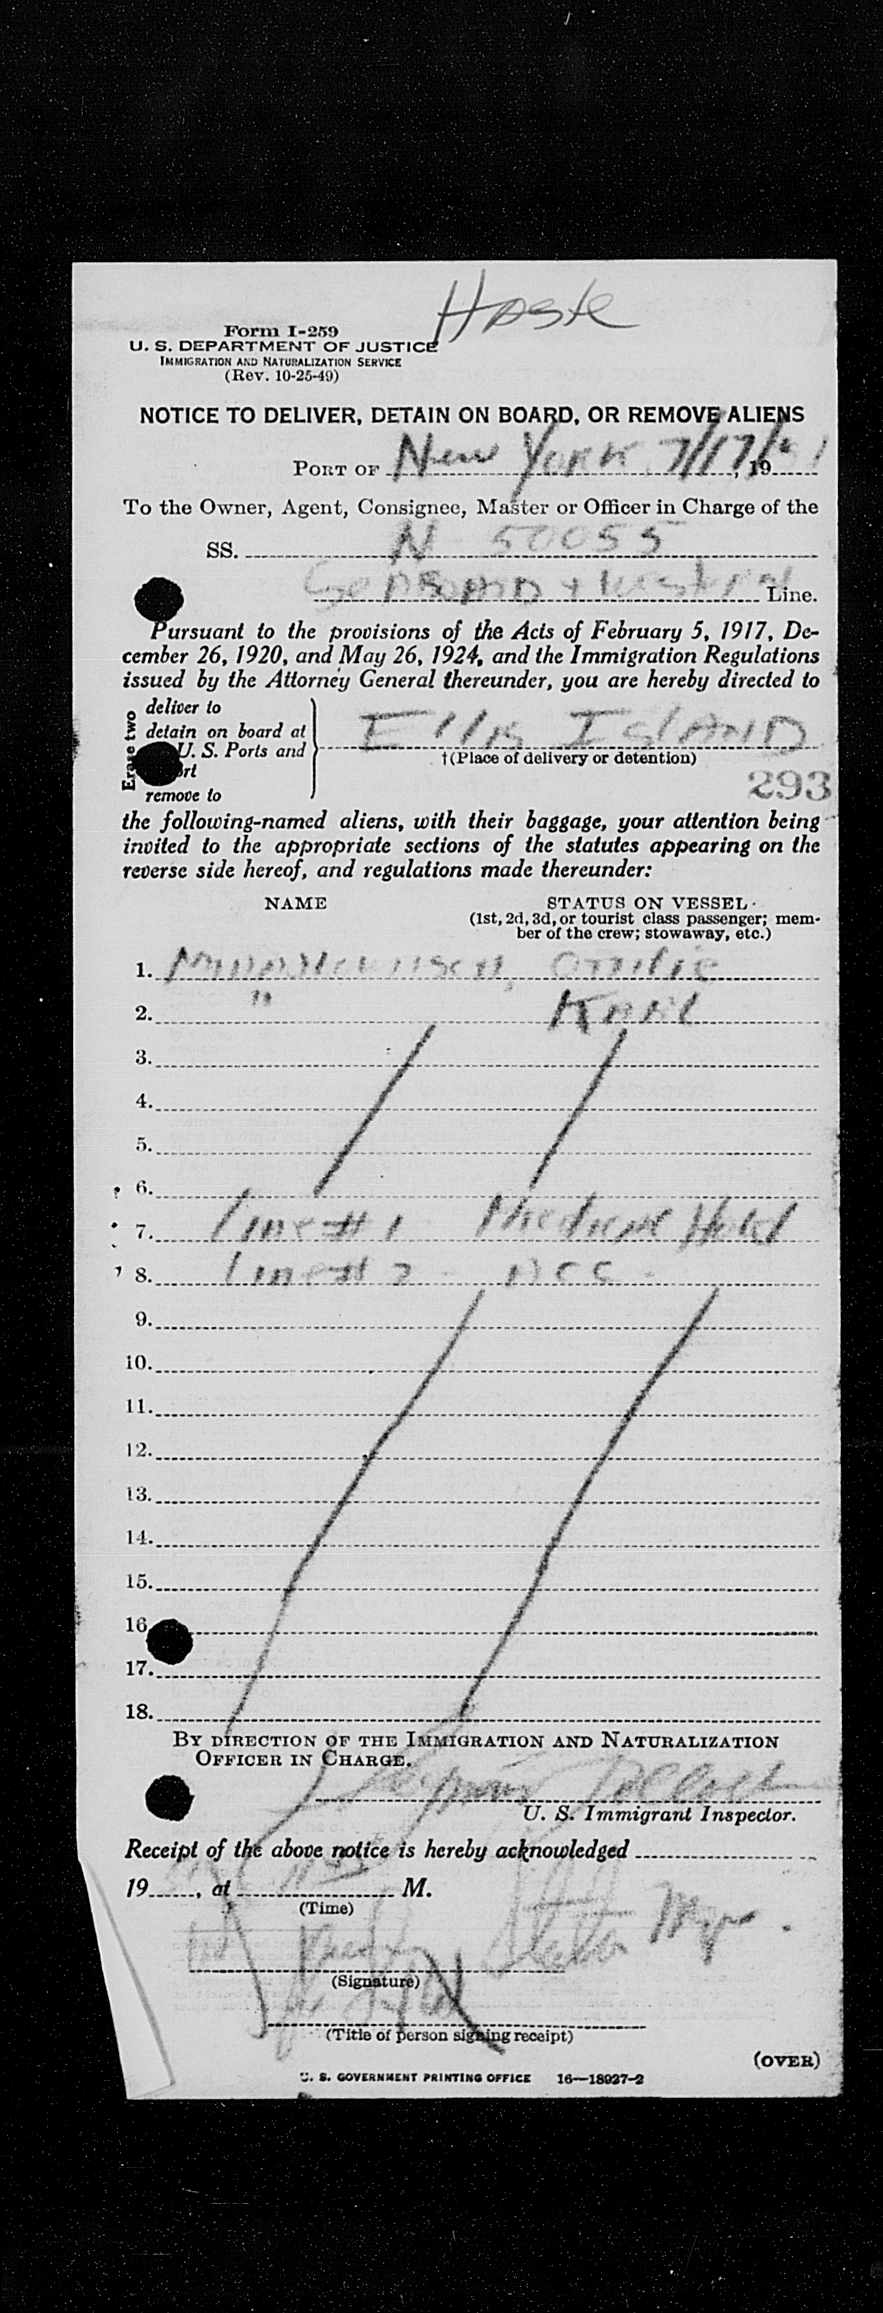 Haste
Form I-259
U. S. DEPARTMENT OF JUSTICE
IMMIGRATION AND NATURALIZATION SERVICE
(Rev. 10-25-49)
NOTICE TO DELIVER, DETAIN ON BOARD, OR REMOVE ALIENS
PORT OF New York 7/17/, 1951
To the Owner, Agent, Consignee, Master or Officer in Charge of the
SS. N 50055
Seaboard + Western Line.
Pursuant to the provisions of the Acts of February 5, 1917, De-
cember 26, 1920, and May 26, 1924, and the Immigration Regulations
issued by the Attorney General thereunder, you are hereby directed to
Erase two
deliver to
detain on board at
U. S. Ports and
remove to
Ellis Island
†(Place of delivery or detention)
293
the following-named aliens, with their baggage, your attention being
invited to the appropriate sections of the statutes appearing on the
reverse side hereof, and regulations made thereunder:
NAME STATUS ON VESSEL
(1st, 2d, 3d, or tourist class passenger; mem-
ber of the crew; stowaway, etc.)
1. Ottilie
2. " Karl
3.
4.
5.
6.
7. Line # 1 - Medical Hold
8. Line # 2 - ACC -
9.
10.
11.
12.
13.
14.
15.
16.
17.
18.
BY DIRECTION OF THE IMMIGRATION AND NATURALIZATION
OFFICER IN CHARGE.
U. S. Immigrant Inspector.
Receipt of the above notice is hereby acknowledged
19, at M.
(Time)
Station Mgr.
(Signature)
(Title of person signing receipt)
(OVER)
U. S. GOVERNMENT PRINTING OFFICE 16—18927-2